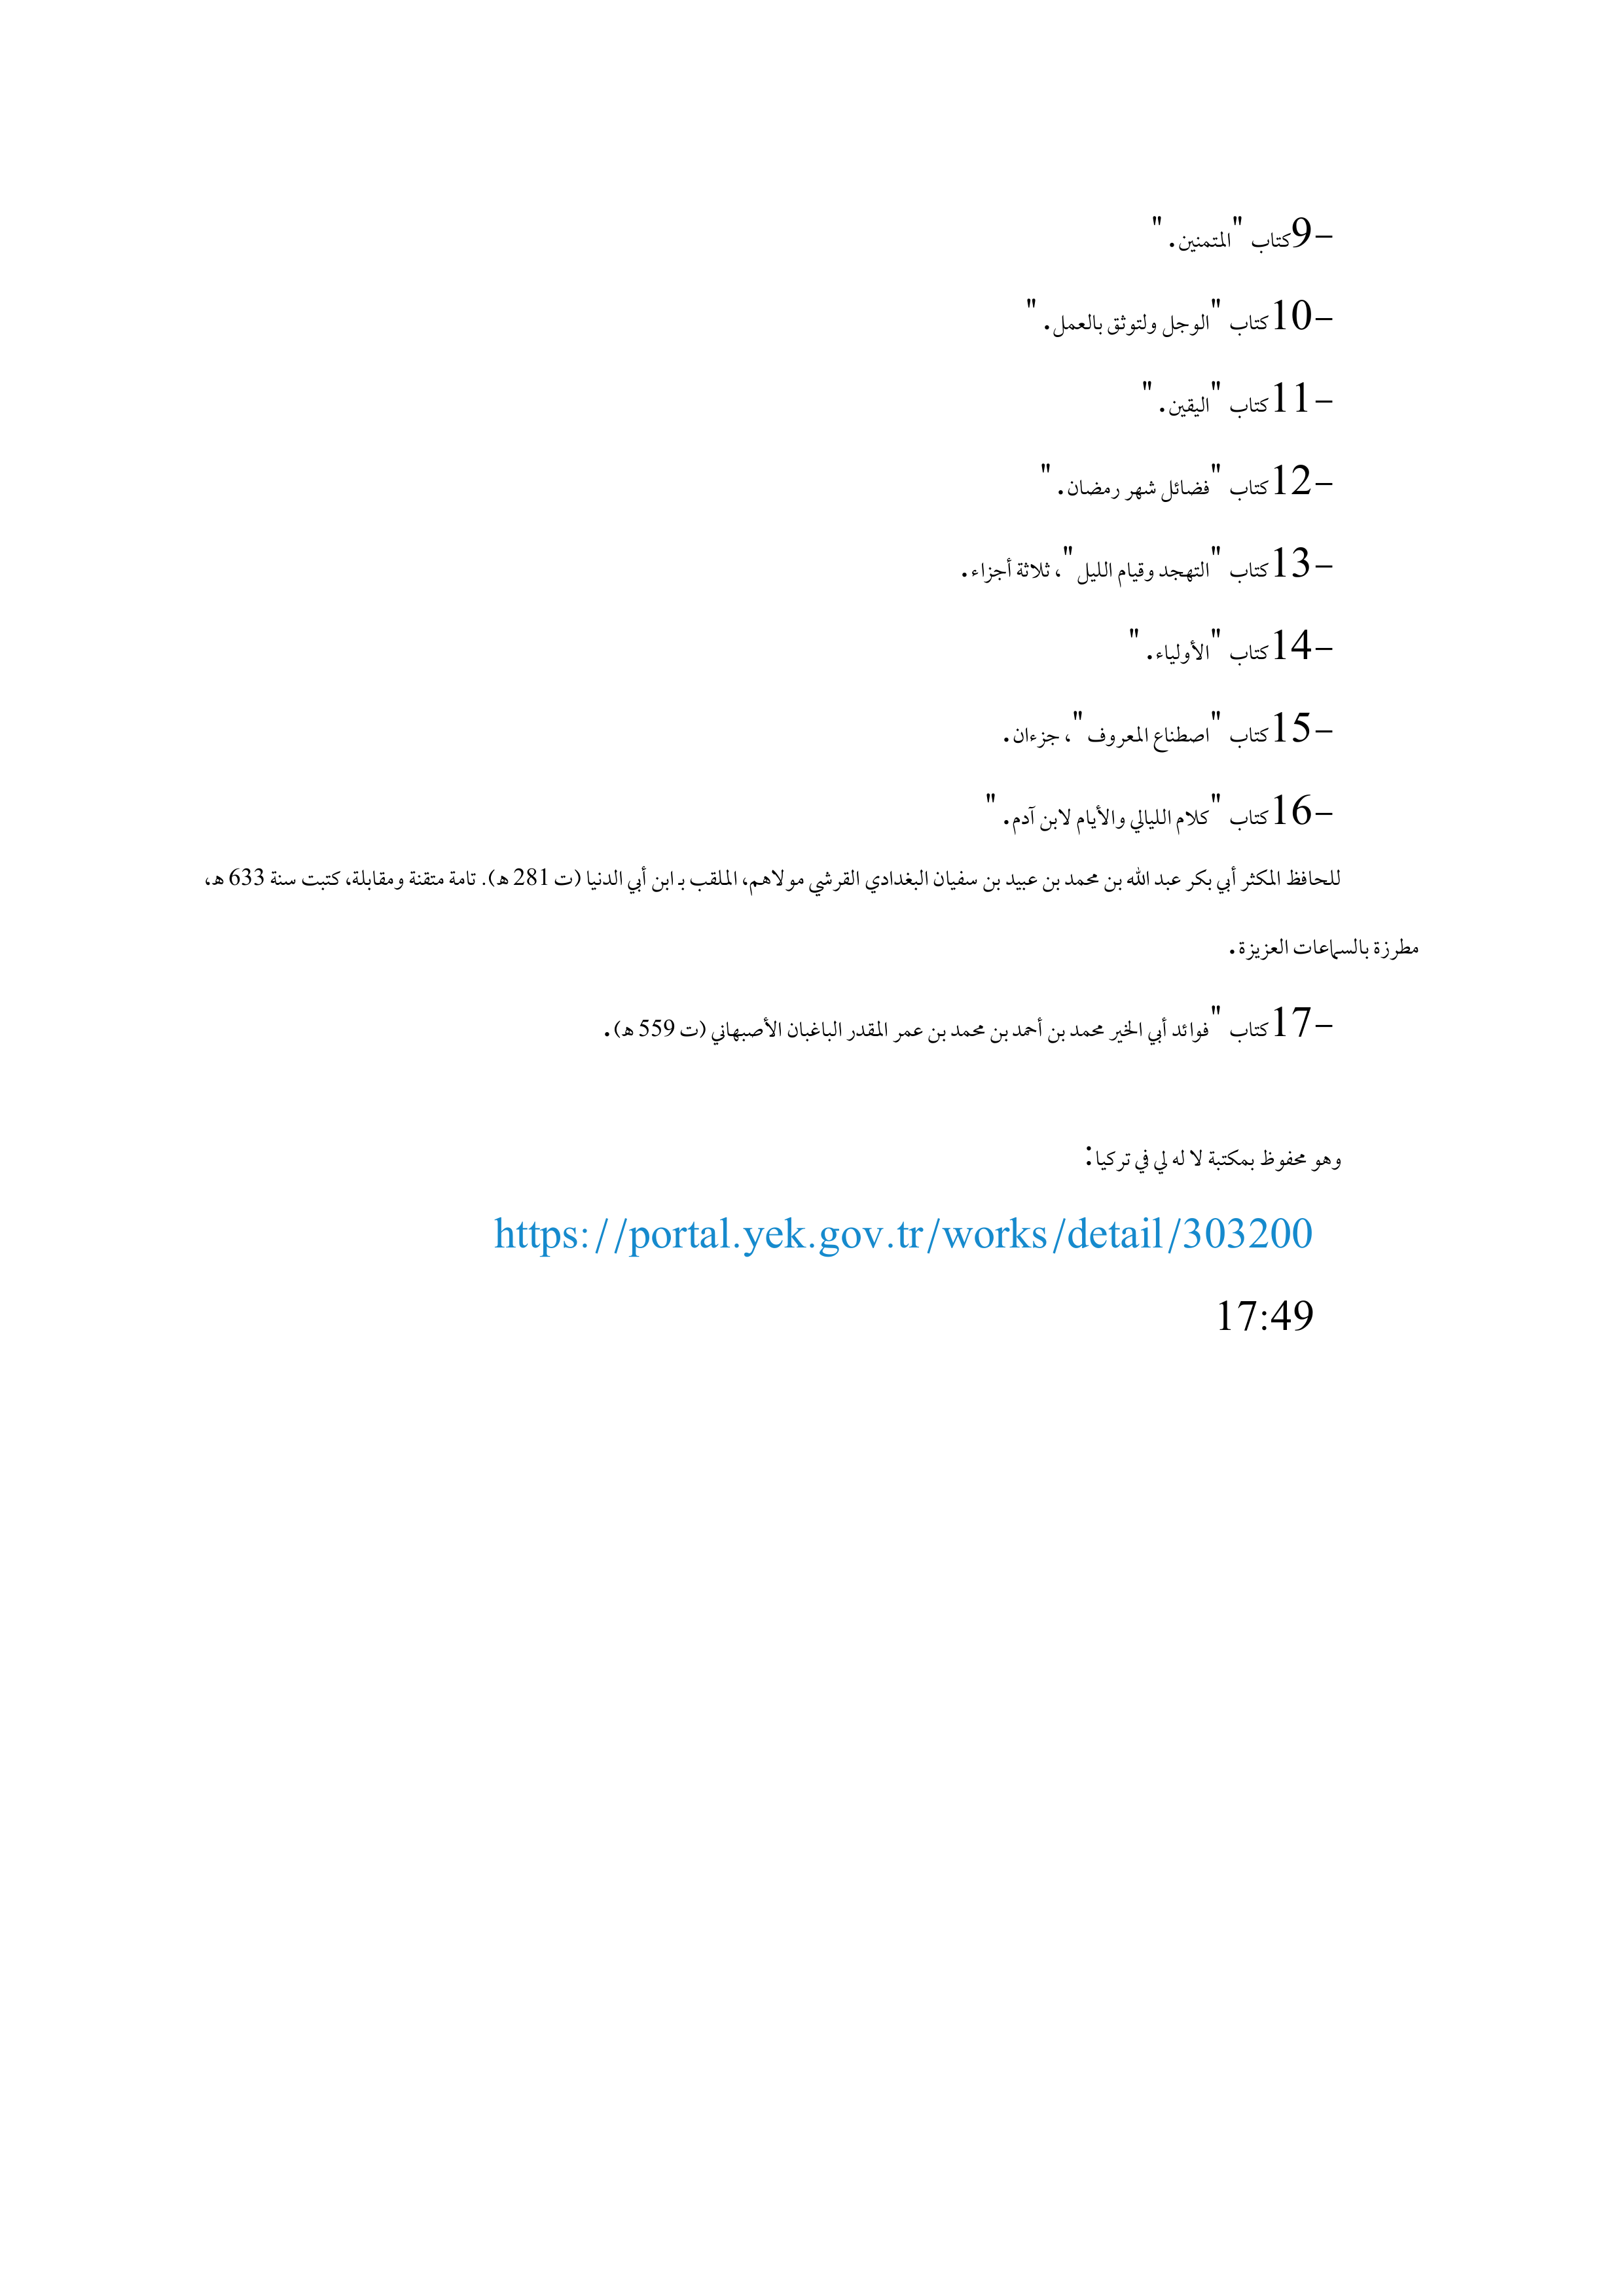 -9كتاب "المتمنين."
-10كتاب "الوجل ولتوثق بالعمل."
-11كتاب "اليقين."
-12كتاب "فضائل شهر رمضان."
-13كتاب "التهجد وقيام الليل"، ثلاثة أجزاء.
-14كتاب "الأولياء."
-15كتاب "اصطناع المعروف"، جزءان.
-16كتاب "كلام الليالي والأيام لابن آدم."
للحافظ المكثر أبي بكر عبد الله بن محمد بن عبيد بن سفيان البغدادي القرشي مولاهم، الملقب بـ ابن أبي الدنيا (ت 281 هـ). تامة متقنة ومقابلة، كتبت سنة 633 هـ،
مطرزة بالسماعات العزيزة.
-17كتاب "فوائد أبي الخير محمد بن أحمد بن محمد بن عمر المقدر الباغبان الأصبهاني (ت 559 هـ).
وهو محفوظ بمكتبة لا له لي في تركيا:
https://portal.yek.gov.tr/works/detail/303200
17:49